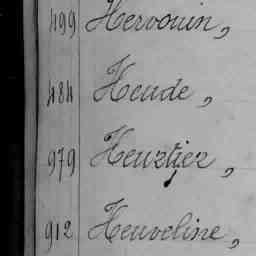 499 Hervouin,
484 Heude,
979 Heuztiez,
912 Heuveline,